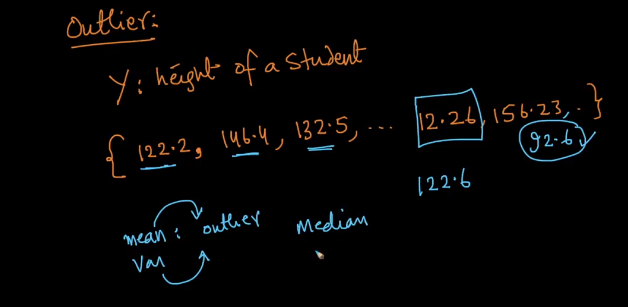 Outlier:
Y: height of a student
{ 122.2, 146.4, 132.5, ... 12.26, 156.23, . }
92.6
122.6
mean: outlier median
Var